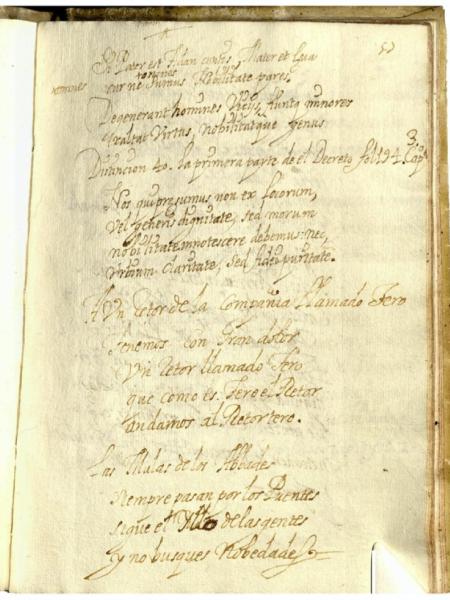 Si Pater est Adan cuntis, Mater et Eua
homines
cur ne sumus Nobilitate pares,
Degenerant homines Vicijs, fiunt minores
Exaltat Virtus, nobilitatque genus
Distincion 40. la primera parte de el Decreto fol 194 Cap 3.
Nos qui presumus non ex locorum,
Vel generis dignitate, sed morum
nobilitate innotescere debemus: nec,
Vrbium claritate, sed fidei puritate.
A Vn Retor de la Compañia llamado Fero
Tenemos con Gran dolor
Vn Retor llamado Fero
que como es Fero el Retor
andamos al Retortero.
Las Mulas de los Abbades
siempre pasan por los Puentes
sigue el de las gentes
y no busques Nobedades